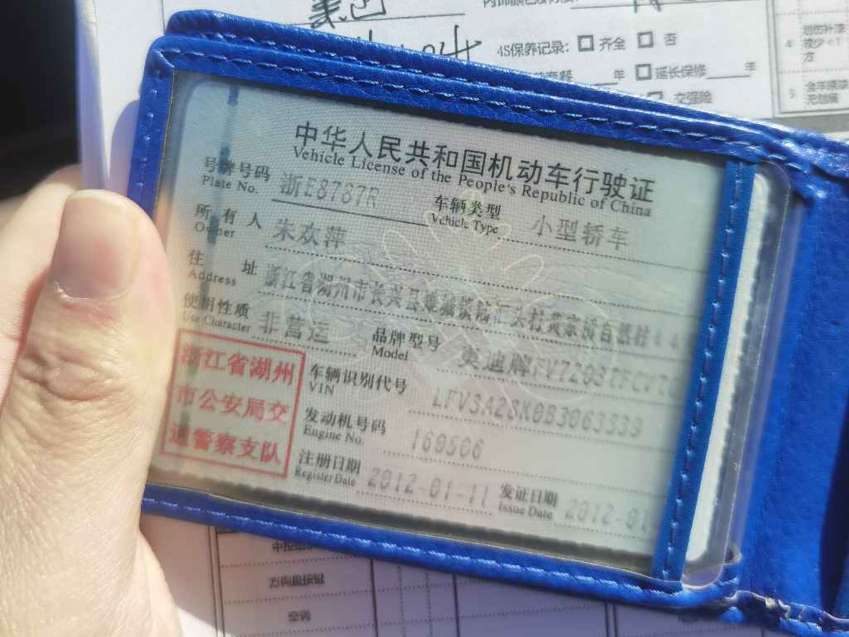 黑色
4S保养记录: 齐全 否
年 延长保修 年
交强险
中华人民共和国机动车行驶证
Vehicle License of the People's Republic of China
号牌号码 浙E8787R 车辆类型 小型轿车
Plate No. Vehicle Type
所有人 朱欢萍
Owner
住址 浙江省湖州市长兴县 村黄家桥自然村44
Address
使用性质 非营运 品牌型号 奥迪牌FV7203TFCVTG
Use Character Model
浙江省湖州
市公安局交
通警察支队
车辆识别代号 LFV3A28K0B3063339
VIN
发动机号码 160506
Engine No.
注册日期 2012-01-11 发证日期 2012-01
Register Date Issue Date